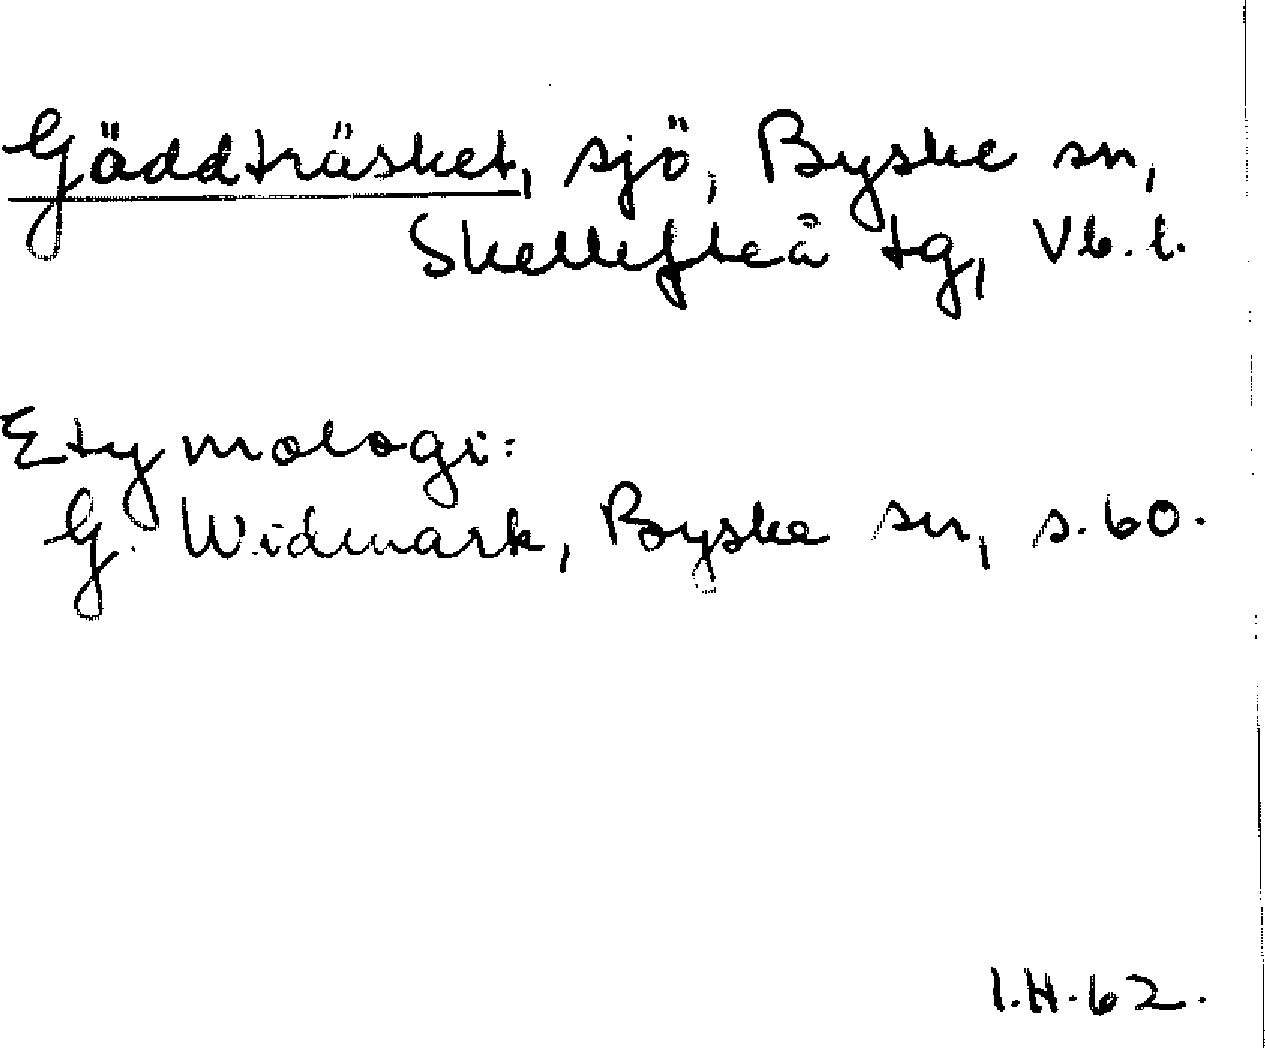 Gäddträsket, sjö, Byske sn,
Skellefteå tg, Vb. l.
Etymologi:
G. Widmark, Byske sn, s. 60.
I.H. 62.